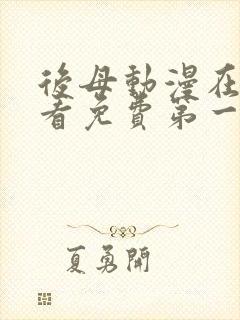 後母動漫在
看免費第一
夏勇開